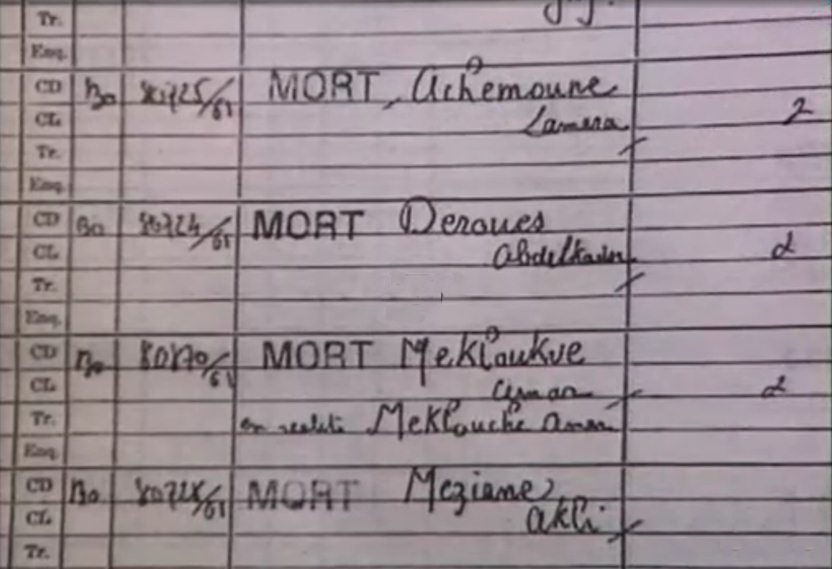 Tr.
Enq.
CD Bo 80725/61 MORT Achemoune
CL Lamara 2
Tr.
Enq.
CD Bo 80724/61 MORT Deroues
CL Abdelkader 2
Tr.
Enq.
CD Bo /61 MORT Mekloukve
CL 2
Tr. en realité Meklouche
Enq.
CD Bo 80728/61 MORT Meziane
CL akli
Tr.